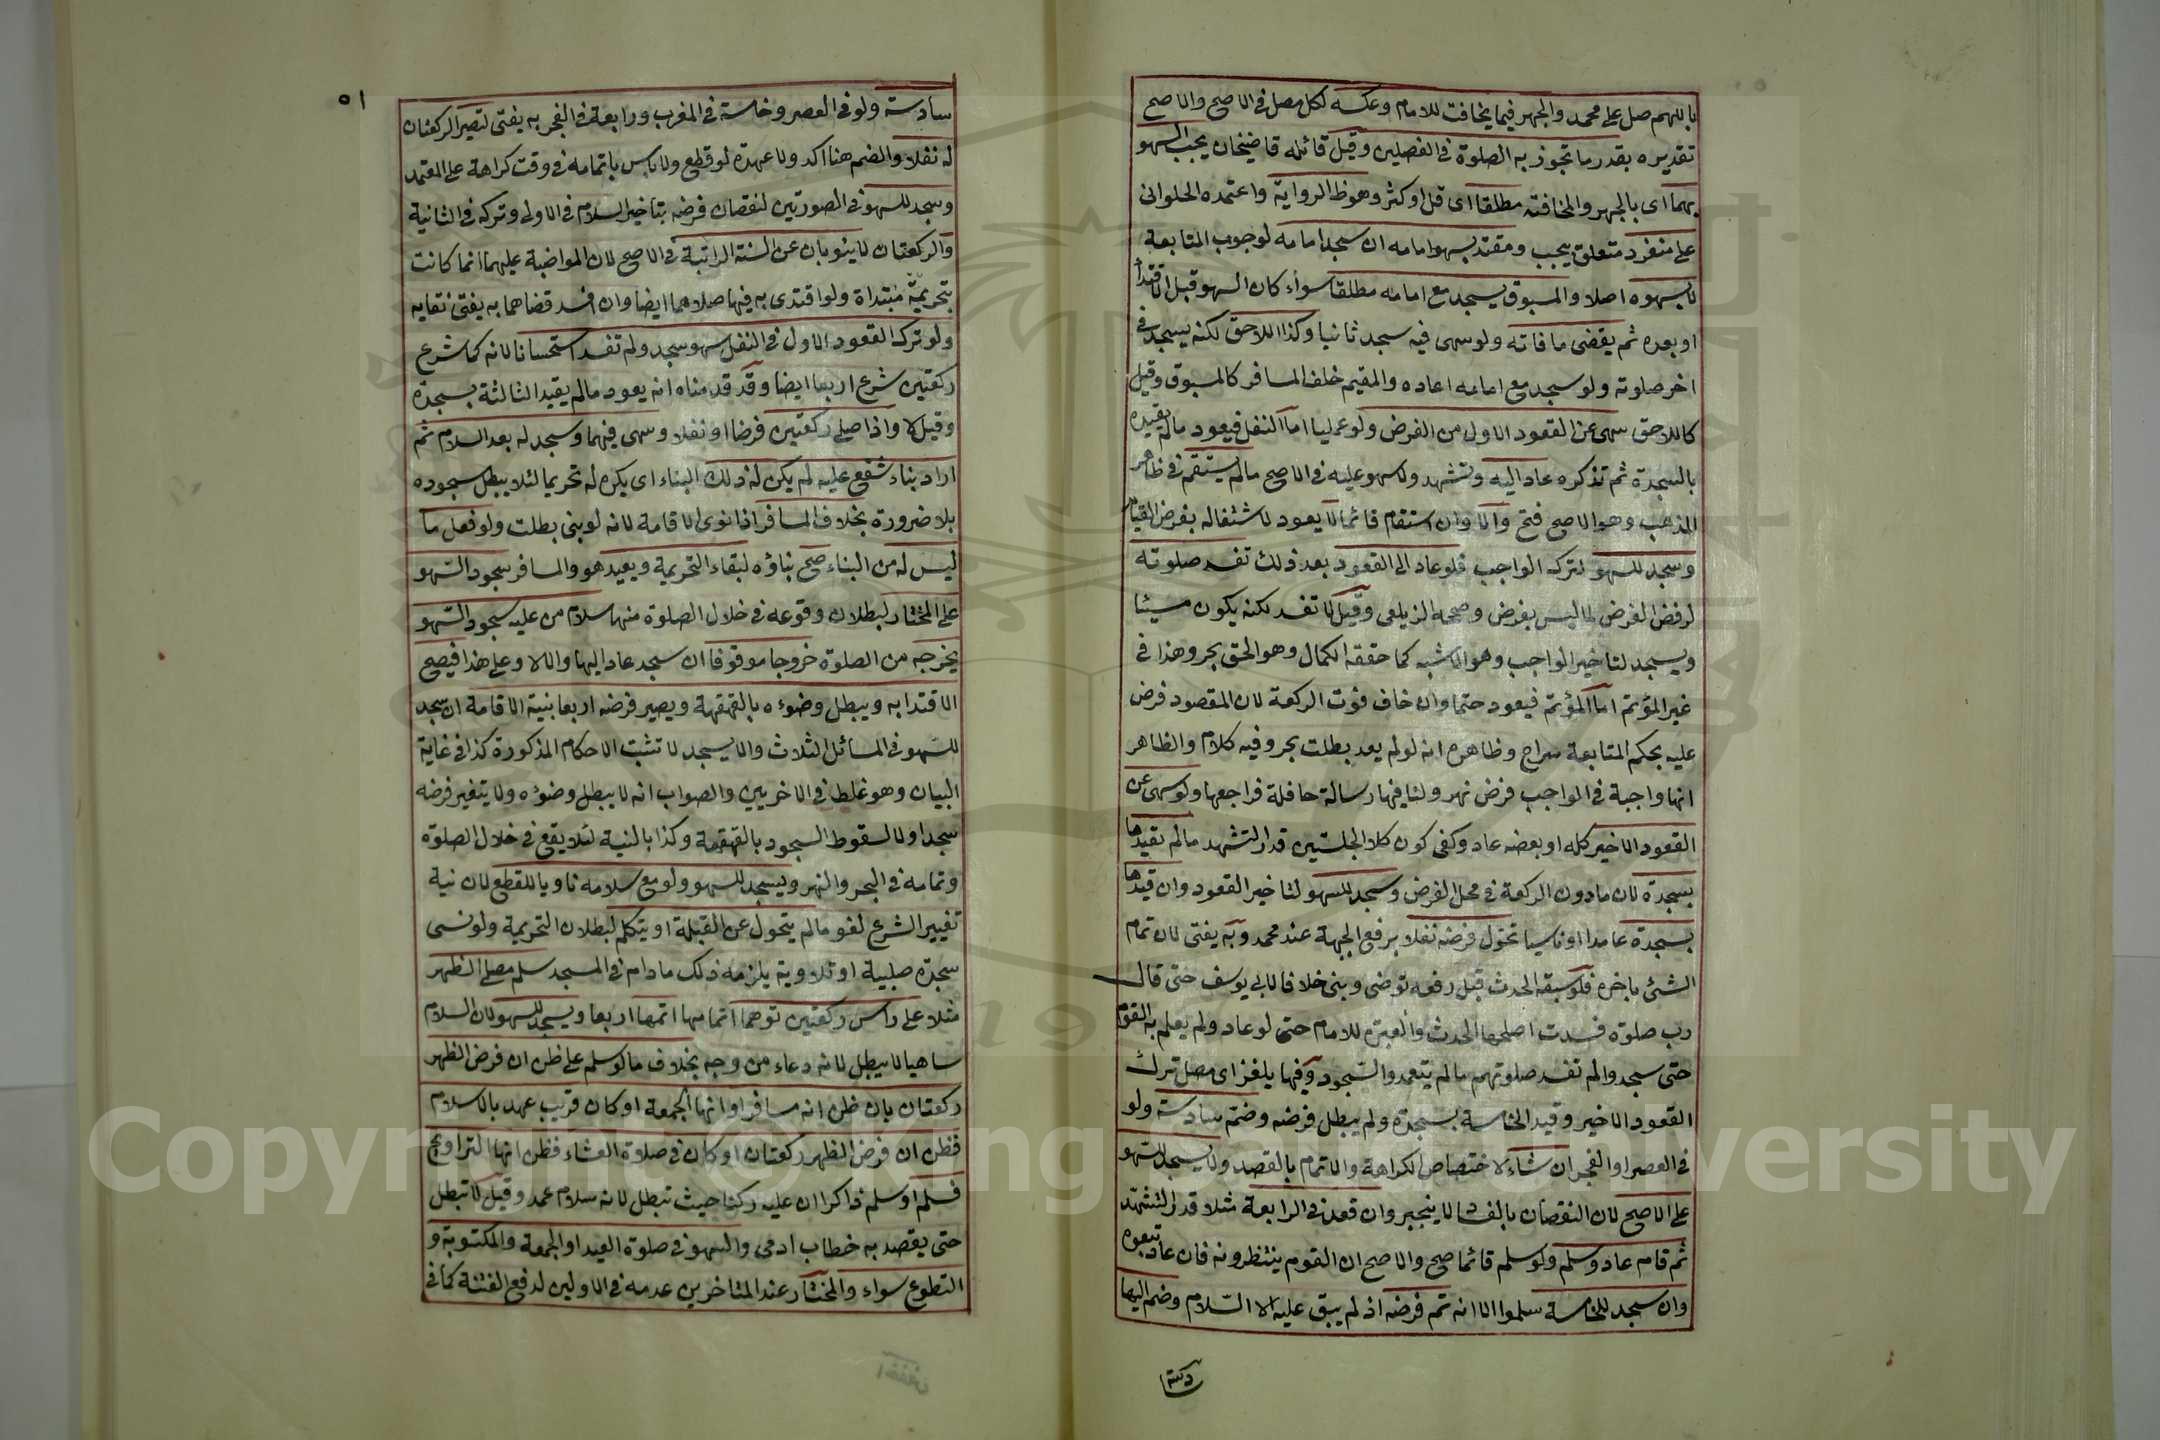 باللهم صل على محمد والجهر فيما يخافت للامام وعكسه لكل مصل في الاصح والاصح
تقديره بقدر ما تجوز به الصلوة في الفصلين وقيل قائله قاضيخان يجب السهو
بهما اى بالجهر والمخافتة مطلقا اى قل او كثر وهو ظ الرواية واعتمده الحلوانى
على منفرد متعلق بيجب ومقتد بسهو امامه ان سجد امامه لوجوب المتابعة
لا بسهوه اصلا والمسبوق يسجد مع امامه مطلقا سواء كان السهو قبل الاقتداء
او بعده ثم يقضى ما فاته ولو سهى فيه سجد ثانيا وكذا اللاحق لكنه يسجد في
اخر صلوته ولو سجد مع امامه اعاده والمقيم خلف المسافر كالمسبوق وقيل
كاللاحق سهى عن القعود الاول من الفرض ولو عمليا اما النفل فيعود مالم يقيده
بالسجدة ثم تذكره عاد اليه وتشهد ولا سهو عليه في الاصح مالم يستقم في ظاهر
المذهب وهو الاصح فتح والا وان استقام قائما لا يعود لاشتغاله بفرض القيام
وسجد للسهو لترك الواجب فلو عاد الى القعود بعد ذلك تفسد صلوته
لرفض الفرض لما ليس بفرض وصححه الزيلعى وقيل لا تفسد لكنه يكون مسيئا
ويسجد لتاخير الواجب وهو الاشبه كما حققه الكمال وهو الحق بحر وهذا في
غير المؤتم اما المؤتم فيعود حتما وان خاف فوت الركعة لان المقصود فرض
عليه بحكم المتابعة سراج وظاهره انه لو لم يعد بطلت بحر وفيه كلام والظاهر
انها واجبة في الواجب فرض نهر ولنا فيها رسالة حافلة فراجعها ولو سهى عن
القعود الاخير كله او بعضه عاد وكفى كون كلا الجلستين قدر التشهد مالم يقيدها
بسجدة لان مادون الركعة في محل الفرض وسجد للسهو لتاخير القعود وان قيدها
بسجدة عامدا او ناسيا تحول فرضه نفلا برفع الجبهة عند محمد وبه يفتى لان تمام
الشئ باخره فلو سبقه الحدث قبل رفعه توضى وبنى خلافا لابي يوسف حتى قال
رب صلوة فسدت اصلحها الحدث والعبرة للامام حتى لو عاد ولم يعلم به القوم
حتى سجدوا لم تفسد صلوتهم مالم يتعمدوا السجود وفيها يلغز اى مصل ترك
القعود الاخير وقيد الخامسة بسجدة ولم يبطل فرضه وضم سادسة ولو
في العصر او الفجر ان شاء لاختصاص الكراهة والاتمام بالقصد ولا يسجد للسهو
على الاصح لان النقصان بالفساد لا ينجبر وان قعد في الرابعة مثلا قدر التشهد
ثم قام عاد وسلم ولو سلم قائما صح والاصح ان القوم ينتظرونه فان عاد تبعوه
وان سجد للخامسة سلموا الا انه تم فرضه اذ لم يبق عليه الا السلام وضم اليها
سادسة
٥١
سادسة ولو في العصر وخامسة في المغرب ورابعة في الفجر به يفتى لتصير الركعتان
له نفلا والضم هنا اكد ولا عهدة لو قطع ولا باس باتمامه في وقت كراهة على المعتمد
وسجد للسهو في الصورتين لنقصان فرضه بتاخير السلام في الاولى وتركه في الثانية
والركعتان لا ينوبان عن السنة الراتبة في الاصح لان المواضبة عليهما انما كانت
بتحريمة مبتداة ولو اقتدى به فيها صلاهما ايضا وان افسد قضاهما به يفتى نقايه
ولو ترك القعود الاول في النفل سهوا سجد ولم تفسد استحسانا لانه كما شرع
ركعتين شرع اربعا ايضا وقد قدمناه انه يعود مالم يقيد الثالثة بسجدة
وقيل لا واذا صلى ركعتين فرضا او نفلا وسهى فيهما وسجد له بعد السلام ثم
اراد بناء شفع عليه لم يكن له ذلك البناء اى يكره له تحريما لئلا يبطل سجوده
بلا ضرورة بخلاف المسافر اذا نوى الاقامة لانه لو بنى بطلت ولو فعل ما
ليس له من البناء صح بناؤه لبقاء التحريمة ويعيد هو والمسافر سجود السهو
على المختار لبطلان وقوعه في خلال الصلوة منها سلام من عليه سجود السهو
يخرجه من الصلوة خروجا موقوفا ان سجد عاد اليها والا لا وعلى هذا فيصح
الاقتدا به ويبطل وضوءه بالقهقهة ويصير فرضه اربعا بنية الاقامة ان سجد
للسهو في المسائل الثلاث والا يسجد لا تثبت الاحكام المذكورة كذا في غاية
البيان وهو غلط في الاخريين والصواب انه لا يبطل وضوءه ولا يتغير فرضه
سجد اولا لسقوط السجود بالقهقهة وكذا بالنية لئلا يقع في خلال الصلوة
وتمامه في البحر والنهر ويسجد للسهو ولو مع سلامه ناويا للقطع لان نية
تغيير الشرع لغو مالم يتحول عن القبلة او يتكلم لبطلان التحريمة ولو نسى
سجدة صلبية او تلاوية يلزمه ذلك مادام في المسجد سلم مصلى الظهر
مثلا على راس ركعتين توهما اتمامها اتمها اربعا ويسجد للسهو لان السلام
ساهيا لا يبطل لانه دعاء من وجه بخلاف مالو سلم على ظن ان فرض الظهر
ركعتان بان ظن انه مسافر او انها الجمعة او كان قريب عهد بالاسلام
فظن ان فرض الظهر ركعتان او كان في صلوة العشاء فظن انها التراويح
فسلم او سلم ذاكرا ان عليه ركنا حيث تبطل لانه سلام عمد وقيل لا تبطل
حتى يقصد به خطاب ادمى والسهو في صلوة العيد او الجمعة والمكتوبة و
التطوع سواء والمختار عند المتاخرين عدمه في الاولين لدفع الفتنة كما في
Copyright © King Saud University